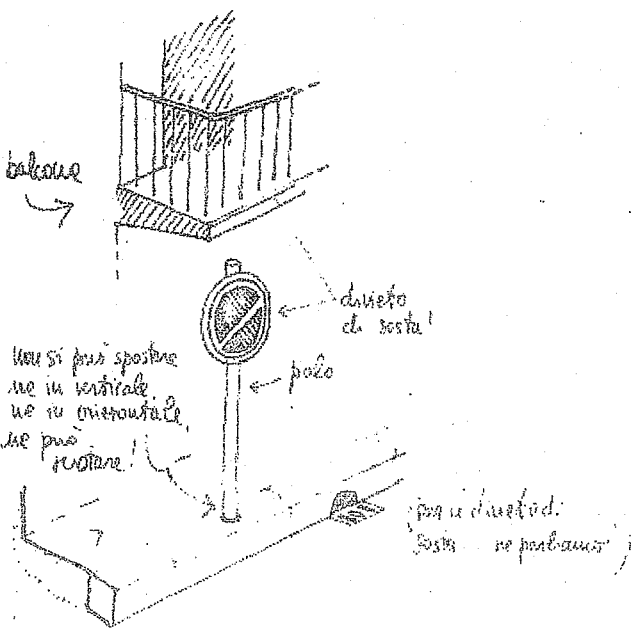 balcone
divieto
di sosta!
non si può spostare
ne in verticale,
ne in orizzontale,
ne può
ruotare!
palo
divieto di
sosta ne parliamo